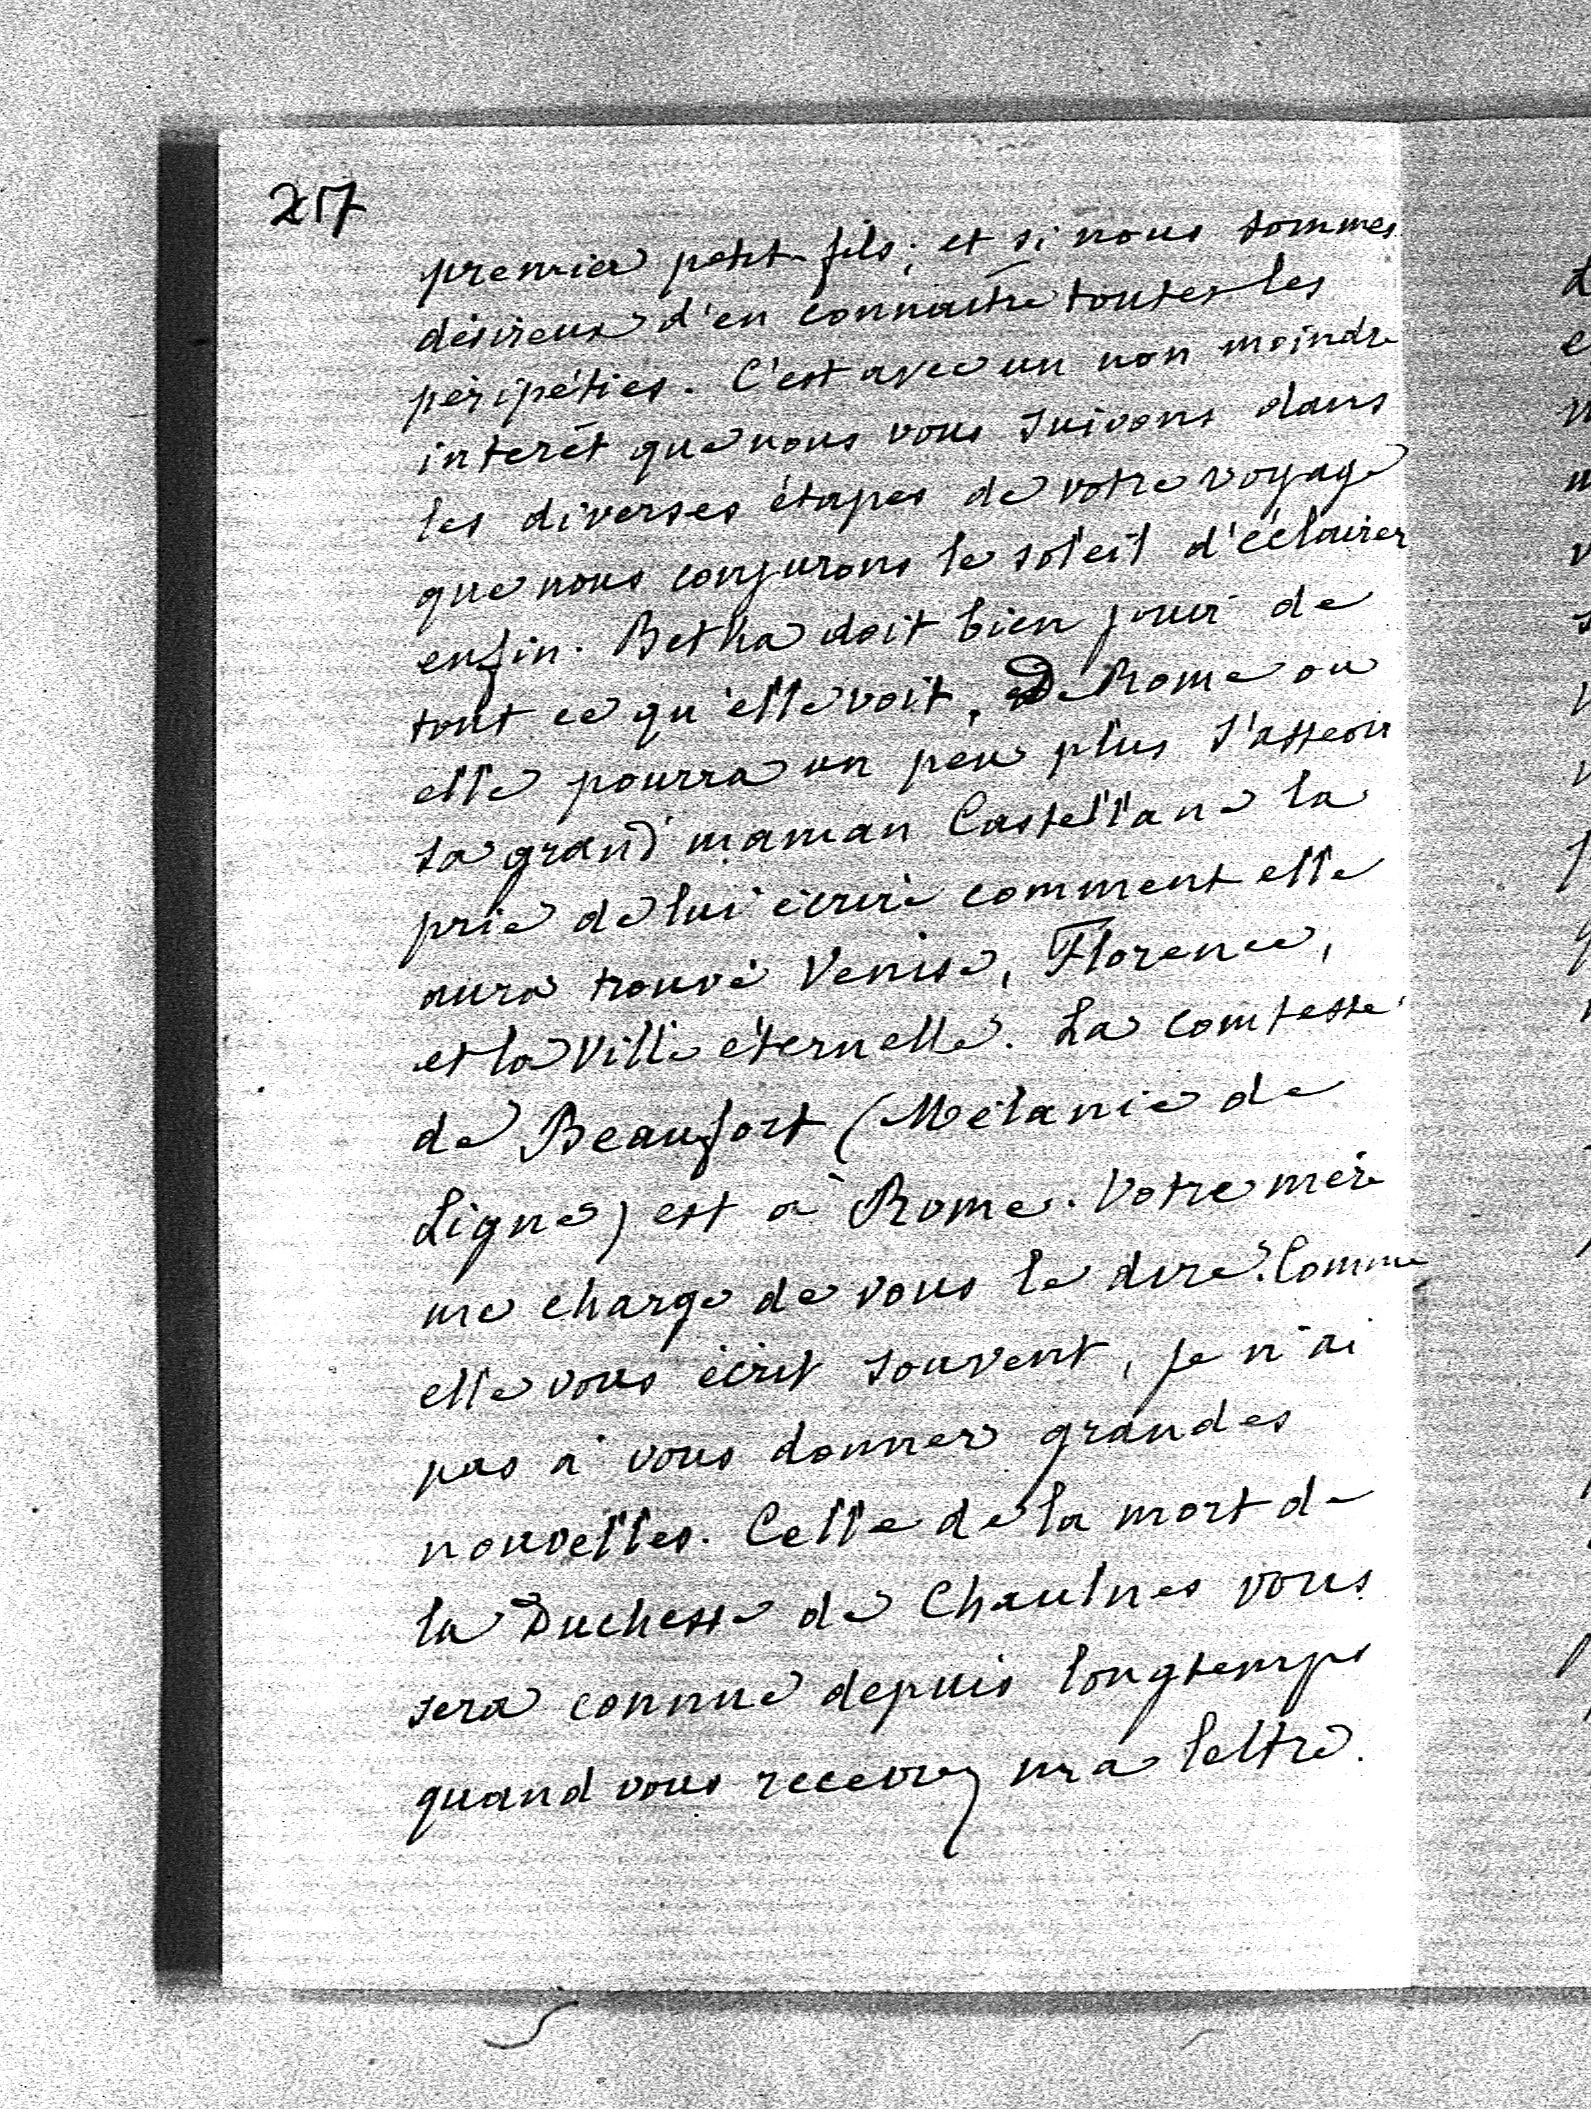 217
premier petit-fils, et si nous sommes
désireux d'en connaître toutes les
péripéties. C'est avec un non moindre
interêt que nous vous suivons dans
les diverses étapes de votre voyage
que nous conjurons le soleil d'éclairer
enfin. Betka doit bien jouir de
tout ce qu'elle voit. De Rome ou
elle pourra un peu plus s'asseoir
sa grand'maman Castellane la
prie de lui écrire comment elle
aura trouvé Venise, Florence,
et la Ville éternelle. La comtesse
de Beaufort (Mélanie de
Ligne) est à Rome. Votre mère
me charge de vous le dire. Comme
elle vous écrit souvent, je n'ai
pas à vous donner grandes
nouvelles. Celle de la mort de
la Duchesse de Chaulnes vous
sera connue depuis longtemps
quand vous recevrez ma lettre.